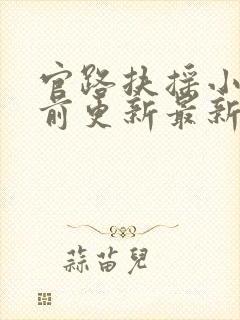 官路扶摇小
前更新最新
蒜苗兒